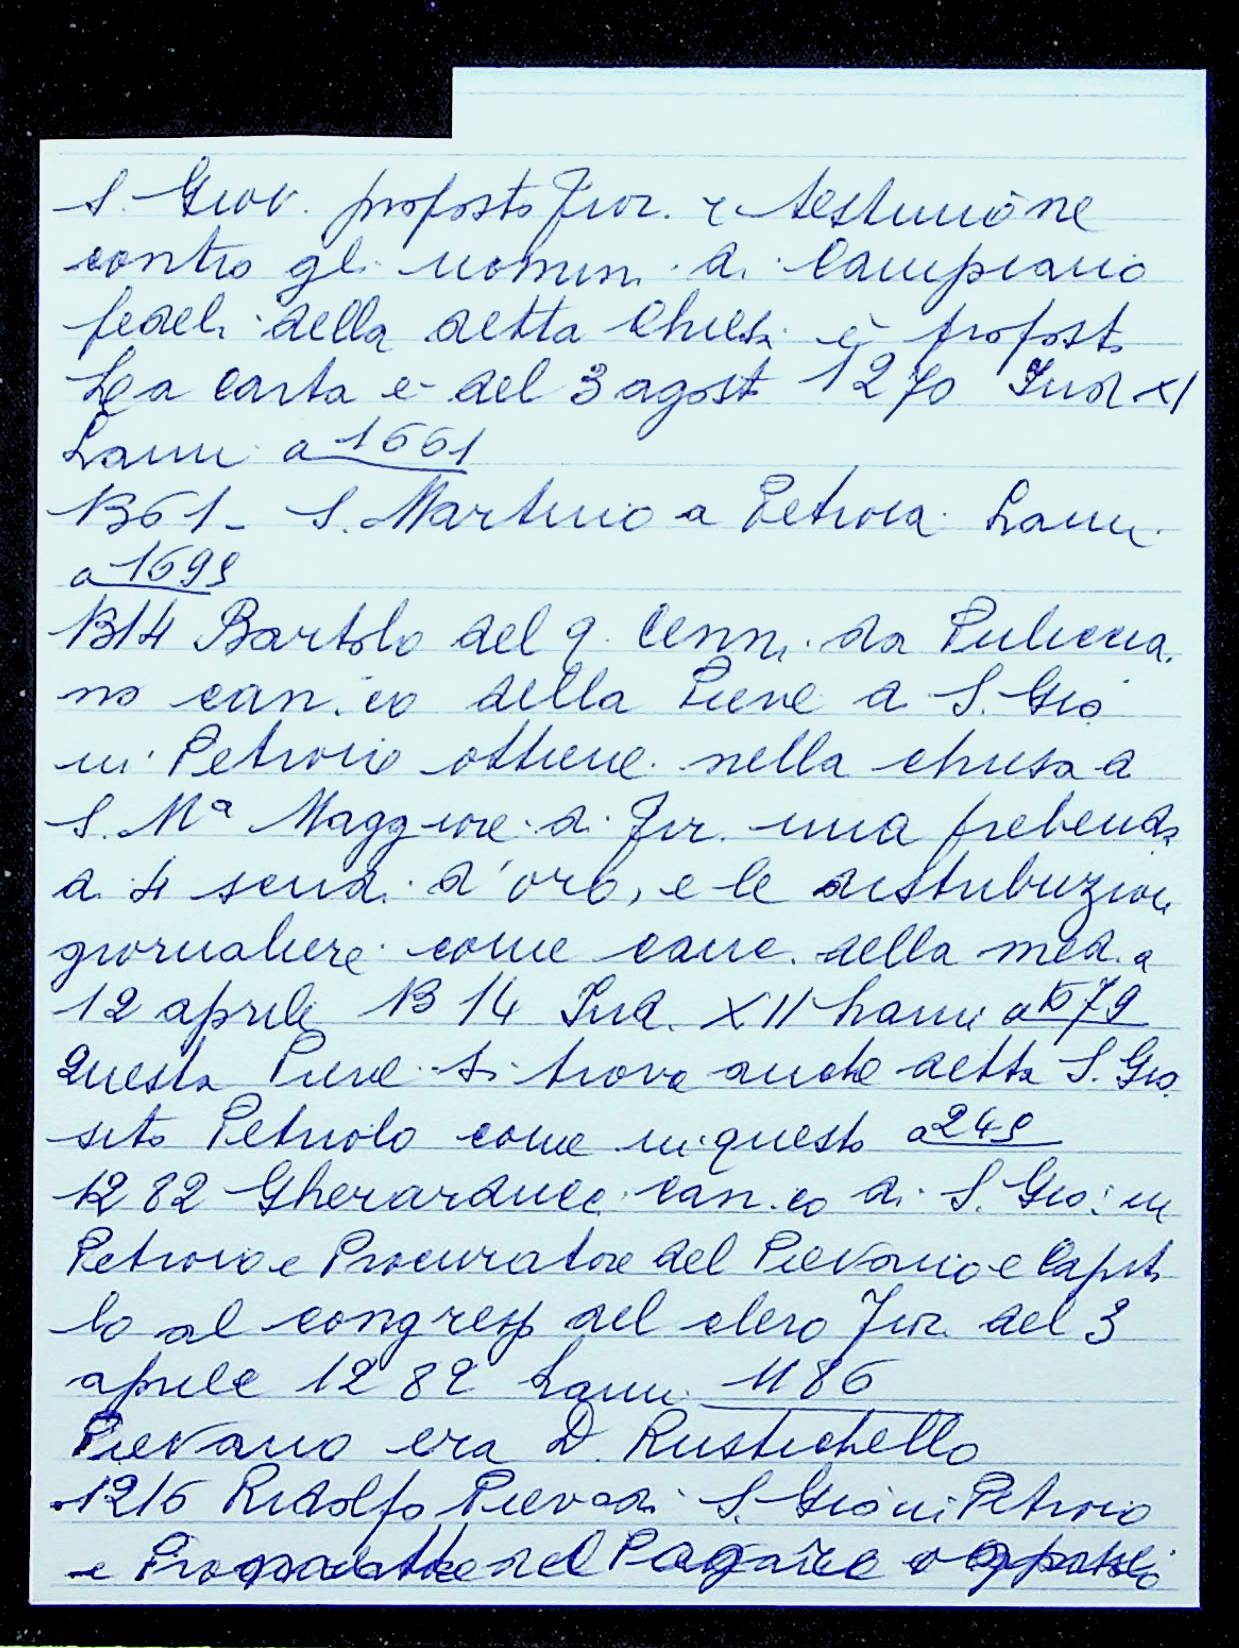 S. Giov. proposto Fior. e testimone
contro gli uomini di Campiano
fedeli della detta Chiesa è proposto
La carta è del 3 agosto 1270 Ind XI
Lami a 1661
1361 - S. Martino a Petroia Lami
a 1699
1314 Bartolo del q. Cenni da Pulicia
no can.co della Pieve di S. Gio
in Petroio ottiene nella chiesa di
S. Mª Maggiore di Fir. una prebenda
di 4 scudi d'oro, e le distribuzioni
giornaliere come canc. della med.a
12 aprile 1314 Ind. XII Lami a 1579
Questa Pieve si trova anche detta S. Gio.
sito Petriolo come in questo a 249
1282 Gherarducc can.co di S. Gio: in
Petroio e Procuratore del Pievano e Capito
lo al congresso del clero Fior. del 3
aprile 1282 Lami 1186
Pievano era D. Rustichello
1216 Ridolfo Pievo di S. Gio in Petroio
e nel